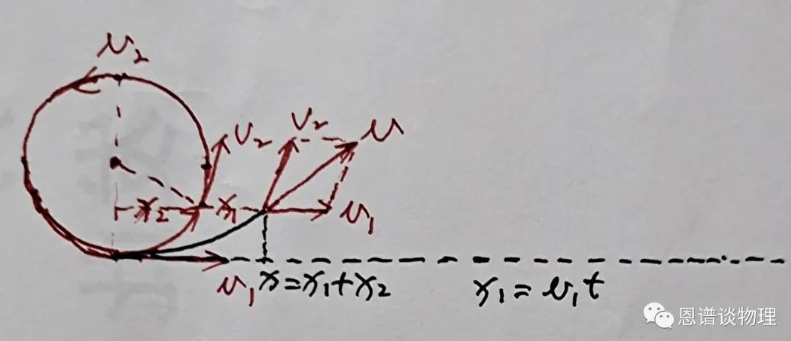 v₂
v₂ v₂ v
x₂ x₁ v₁
v₁ x=x₁+x₂ x₁=v₁t
恩谱谈物理